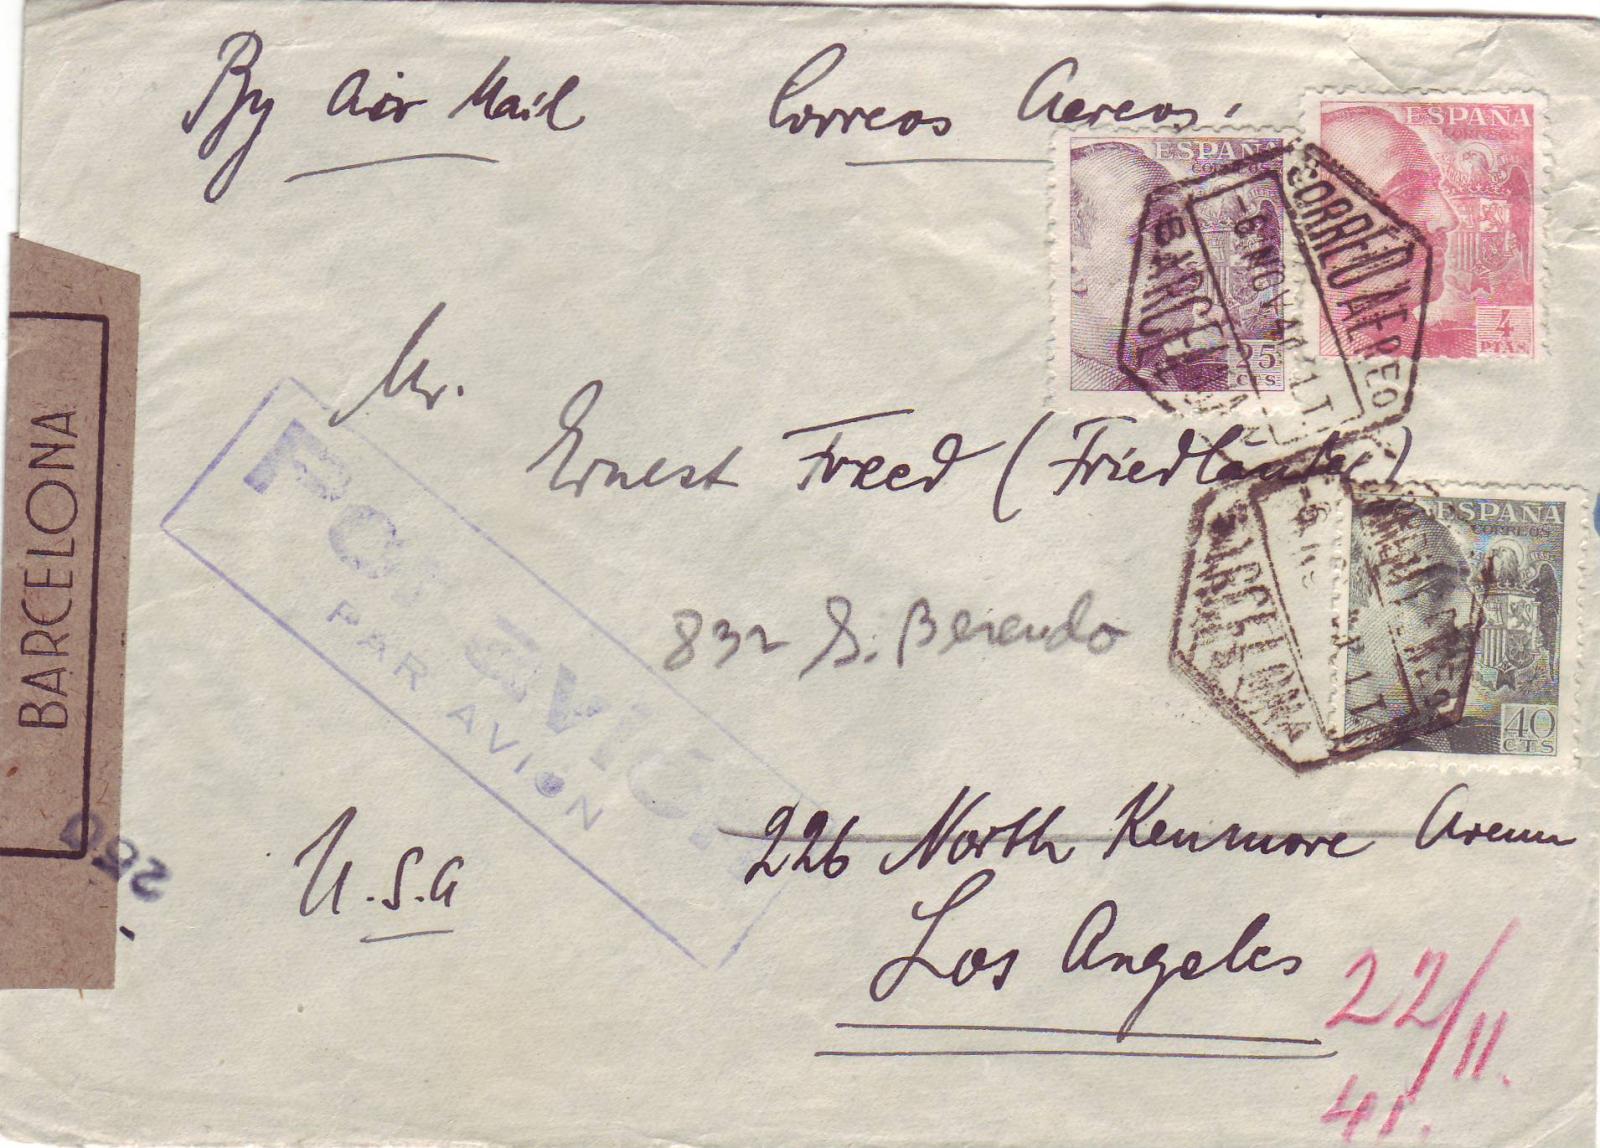 By Air Mail Correos Aereos.
ESPAÑA
CORREOS
25
CTS
ESPAÑA
CORREOS
4
PTAS
CORREO AEREO
BARCELONA
Mr.
Ernest Freed (Friedländer)
BARCELONA
POR AVION
PAR AVION
ESPAÑA
CORREOS
40
CTS
BARCELONA
832 S. Berendo
226 North Kenmore Avenue
U.S.A
Los Angeles
22/11.
41.